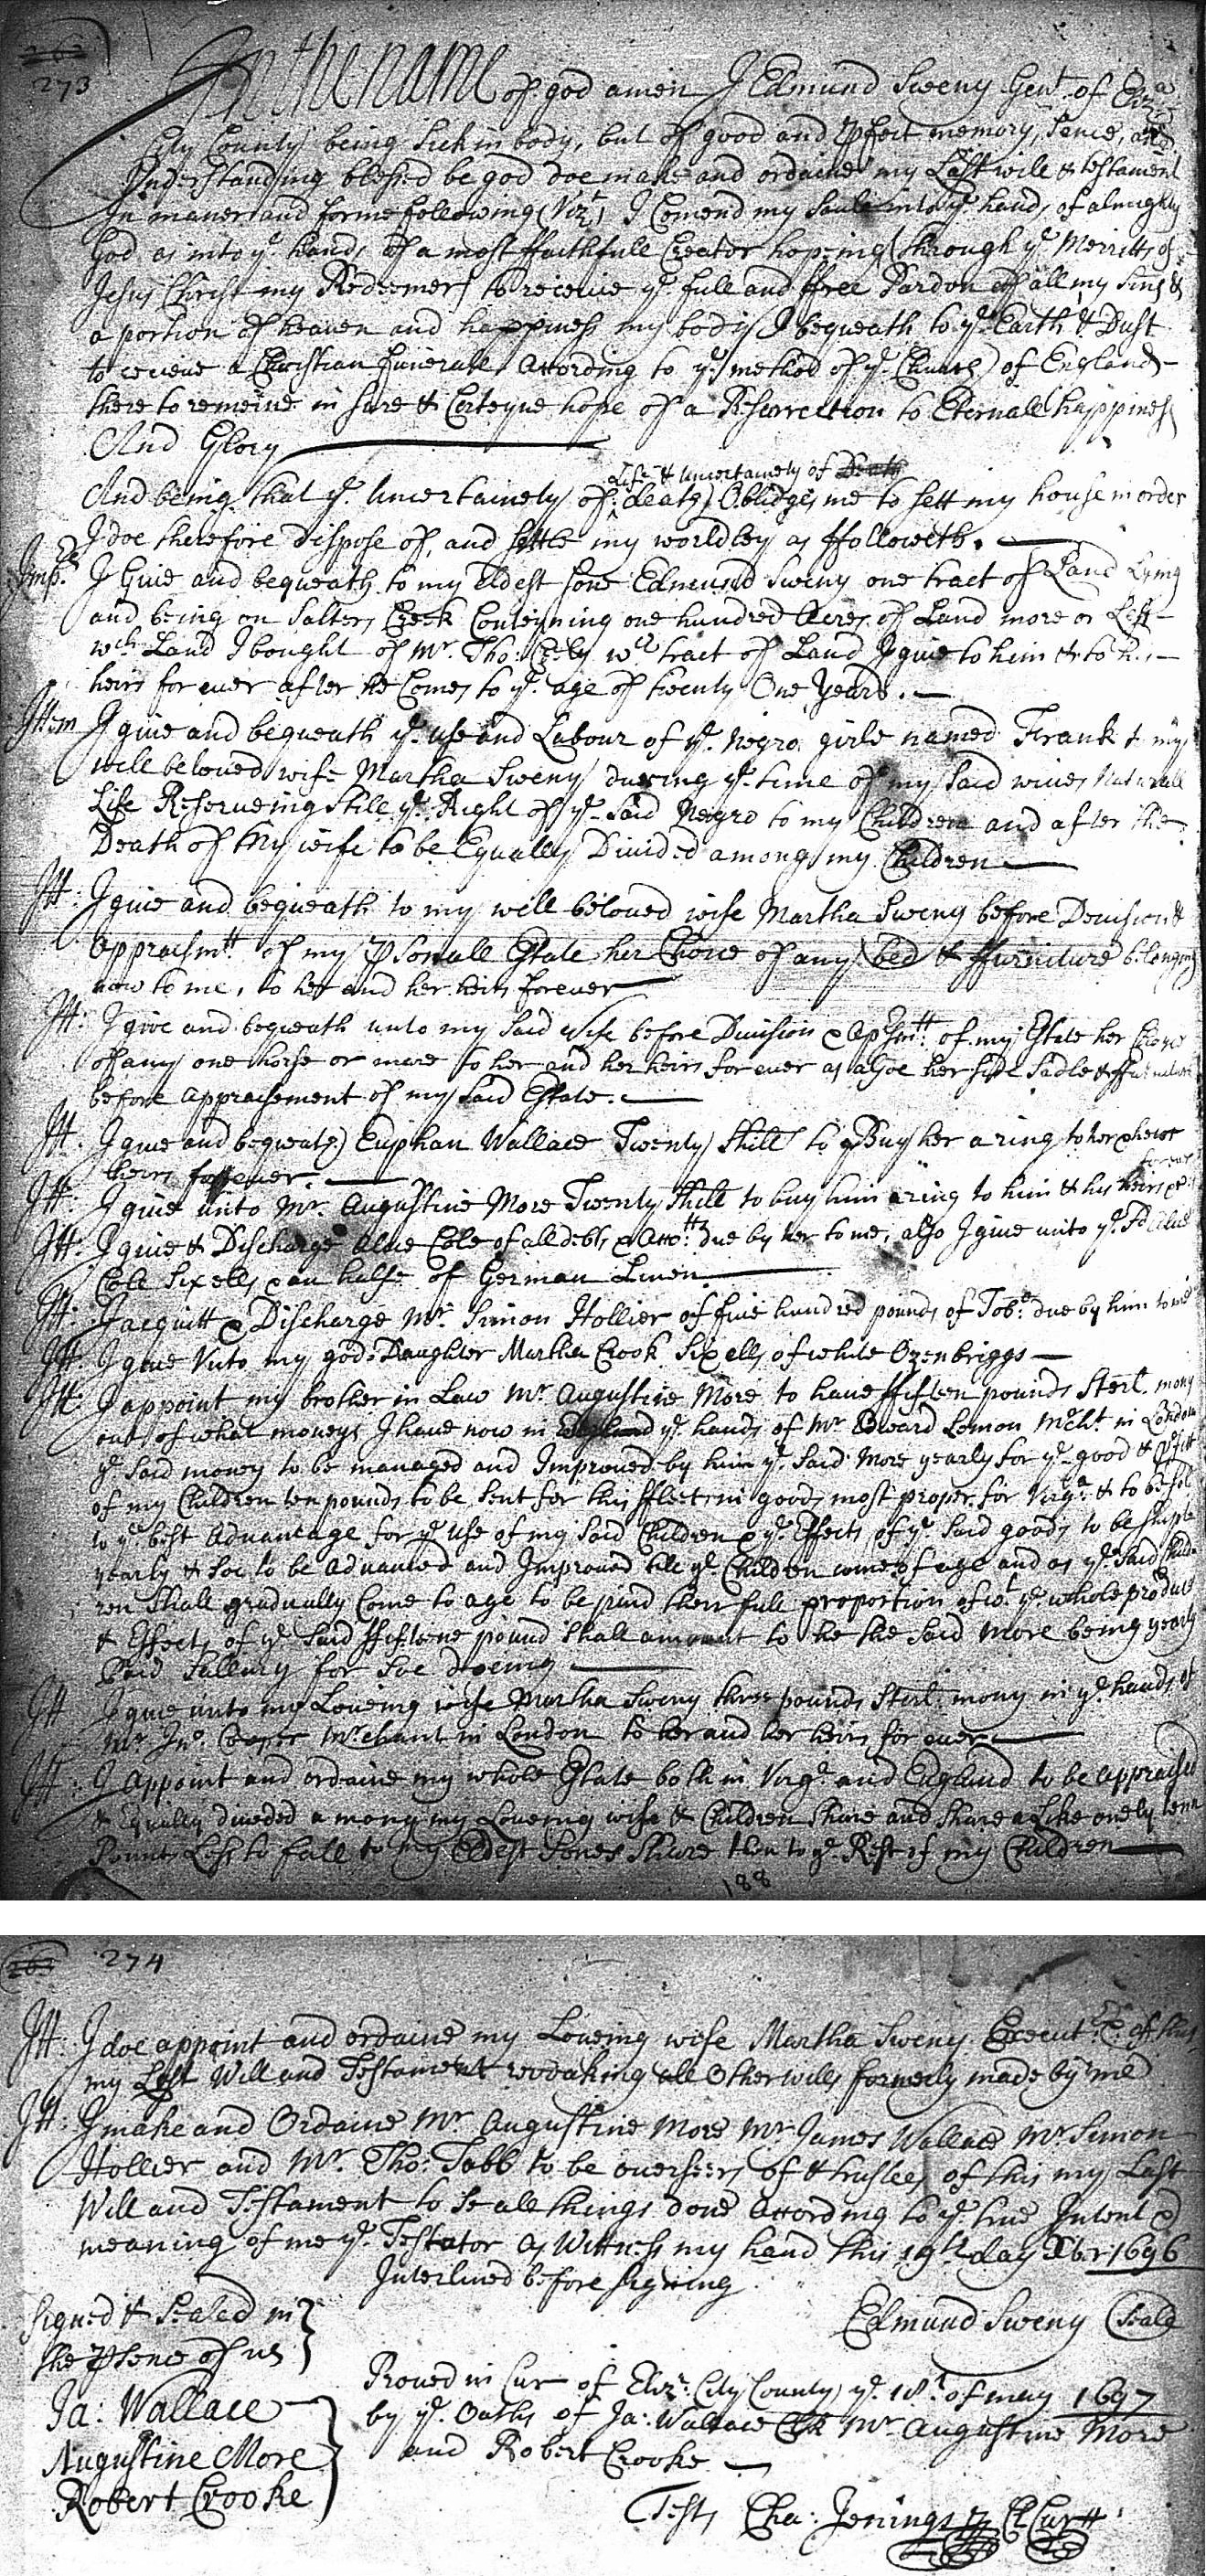 273
In the name of god amen I Edmund Sweny Gent. of Eliza
City County being Sick in body, but of good and pfect memory, Sence, and
Understanding blessed be god doe make and ordaine my Last will & testament
In maner and forme following (Vizt.) I Comend my Soule into ye. hands of almighty
God as into ye. hands of a most ffaithfull Creator hopeing through ye. Merritts of
Jesus Christ my Redeemer to receive ye. full and ffree Pardon of all my Sins &
a portion of heaven and happiness my body I bequeath to ye. Earth & Dust
to receive a Christian funerall According to ye. method of ye. Church of England
there to remeine in sure & Certeyne hope of a Resurrection to Eternall happiness
And Glory
Life & Uncertainety of Death
And being that ye. Uncertainety of death Obliges me to sett my house in order
I doe therefore Dispose of, and settle my worldley as ffolloweth.
Imps. I Give and bequeath to my eldest Sone Edmund Sweny one tract of Land Lying
and being on Salters Creek Conteyning one hundred Acres of Land more or Less
wch Land I bought of Mr. Tho: wch tract of Land I give to him & to his
heirs for ever after he Comes to ye. age of twenty One Years.
Ittem I give and bequeath ye. use and Labour of ye. Negro girle named Frank to my
well beloved wife Martha Sweny during ye. time of my said wives Naturall
Life Reserveing Still ye. Right of ye. Said Negro to my Children and after the
Death of My wife to be Equally Divided among my Children
Itt: I give and bequeath to my well beloved wife Martha Sweny before Devision &
Appraismtt. of my psonall Estate her Choice of any bed & ffurniture belonging
now to me, to her and her heirs forever
Itt: I give and bequeath unto my Said wife before Division & of my Estate her Choyce
of any one horse or mare to her and her heirs for ever as alsoe her side Sadle & ffurniture
before appraisement of my said Estate.
Itt. I give and bequeath Euphan Wallace Twenty Shill to Buy her a ring to her
heirs forever.
Itt: I give unto Mr. Augustine More Twenty Shill to buy him a ring to him & his heirs forever
Itt: I give & Discharge Cole of all debts & Acc:tts due by her to me, also I give unto ye. Sd
Cole Six ells & an halfe of German Linen
Itt: I acquitt & Discharge Mr. Simon Hollier of five hundred pounds of Tob:o due by him to me
Itt: I give Unto my god Daughter Martha Crook Six ells of white Ozenbriggs
Itt: I appoint my brother in Law Mr. Augustine More to have ffifteen pounds Sterl. mony
out of what moneys I have now in ye. hands of Mr Edward Lemon Mcht. in London
ye. Said money to be managed and Improved by him ye. Said More yearly for ye. good & pfitt
of my Children ten pounds to be Sent for this ffleet in goods most proper for Virga. & to be sold
to ye. best Advantage for ye. use of my Said Children & ye. Effects of ye. Said goods to be shipte
yearly & Soe to be Advanced and Improved till ye. Children come of age and as ye. Said Child
ren Shall gradually Come to age to be paid their full proportion of wt. ye. whole produce
& Effects of ye. Said ffifteene pound Shall amount to he the Said More being yearly
Paid Sallery for Soe doeing
Itt I give unto my Loveing wife Martha Sweny three pounds Sterl. mony in ye. hands of
Mr Jno. Cooper Mrchant in London to her and her heirs for ever
Itt: I Appoint and ordaine my whole Estate both in Virga. and England to be appraised
& Equally diveded among my Loveing wife & Children Share and Share alike onely tenn
Pounds Less to fall to my Eldest Sones Share then to ye. Rest of my Children
188
274
Itt: I doe appoint and ordaine my Loveing wife Martha Sweny Execut:rx of this
my Last Will and Testament revoaking all Other wills formerly made by me
Itt: I make and Ordaine Mr. Augustine More Mr James Wallace Mr. Simon
Hollier and Mr. Tho: Tabb to be overseers of & trustees of this my Last
Will and Testament to Se all things done According to ye. true Intent &
meaning of me ye. Testator As Wittness my hand this 19th day Xbr 1696
Interlined before signing
Signed & Sealed in
the psence of us
Edmund Sweny Seale
Ja: Wallace
Augustine More
Robert Crooke
Proved in Cur of Eliza: City County ye. 18t. of may 1697
by ye. Oaths of Ja: Wallace Clk Mr. Augustine More
and Robert Crooke
Test, Cha: Jenings Cl Curtt